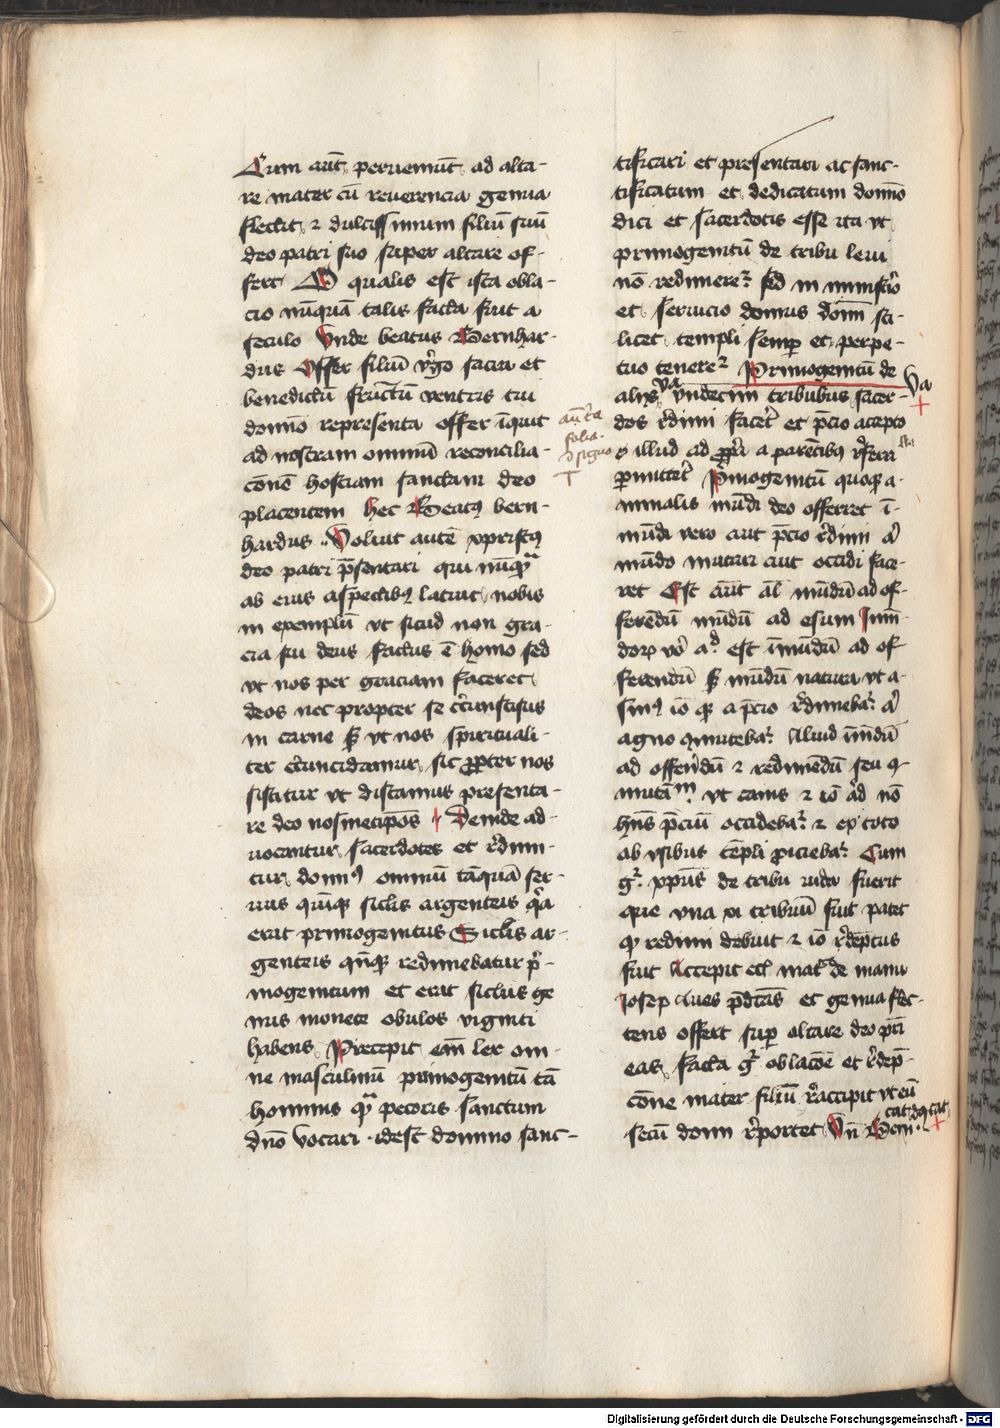 Cum aūt perveniūt ad alta-
re mater cū reverencia genua
flectit ⁊ dulcissimum filiū suū
deo patri suo super altare of-
fert O qualis est ista obla-
cio nūquā talis facta fuit a
seculo Unde beatus Bernhar-
dus Offer filiū v̄go sacra et
benedictū fructū ventris tui
domīo representa offer īquit
ad nostram omniū reconcilia-
cōnē hostiam sanctam deo
placentem hec Beatꝰ bern-
hardus Voluit autē xpristꝰ
deo patri p̄sentari qui nūqͣ
ab eius aspectibꝰ latuit nobis
in exemplū vt sicud non gra-
cia sui deus factus ē homo sed
vt nos per graciam faceret
deos nec propter se c̄cunscisus
in carne sꝫ vt nos spirituali-
ter c̄cuncidamur sic ꝓpter nos
sistitur vt discamus presenta-
re deo nosmetip̄os Deinde ad-
vocantur sacerdotes et r̄dimi-
tur domīꝰ omniū tāquā ser-
vus quīqꝫ siclis argenteis qͥa
erat primogenitus Siclis ar-
genteis qn̄qꝫ redimebatur pͥ-
mogenitum et erat siclus ge
nus monete obulos viginti
habens Precepit em̄ lex om-
ne masculinū primogenitū tā
hominis qͣ pecoris sanctum
dn̄o vocari idest domino sanc-
tificari et presentari ac sanc-
tificatum et dedicatum domīo
dici et sacerdotis esse ita vt
primogenitū de tribu levi
nō redimeret᷑ sed in ministͥo
et servicio domus domī sci-
licet templi semꝑ et perpe-
tuo teneret᷑ Primogenitū de
aliis undecim tribubus sacer-
dos r̄dimi facet᷑ et p̄cio acepto
illud ad ꝓpͥa a parētibus r̄ferri
ꝑmittet᷑ Pͥmogenitū quoqꝫ a-
nimalis mūdi deo offerret ī-
mūdi vero aut p̄cio r̄dimi aͥ
mūdo mutari aut occidi face-
ret Est aūt al̄ mūdū ad of-
ferēdū mūdū ad esum Inmū-
doꝝ vo̊ ad est īmūdū ad of
ferendū sꝫ mūdū natura vt a-
sinꝰ iō qꝫ a p̄cio r̄dimebat᷑ aͥ
agno ꝯmutebat᷑ Aliud īmūdū
ad offerēdū ⁊ redimēdū seu ꝯ-
mutāᵐ vt canis ⁊ iō ad nō
hn̄s p̄ciū occidebat᷑ ⁊ ex toto
ab usibus tēpli ꝓiciebat᷑ Cum
gͦ xp̄us de tribu iuda fuerit
que una xi tribuū fuit patet
qꝫ redimi debuit ⁊ iō r̄dēptus
fuit Accepit ecͥ mat᷑ de manu
Iosep aves p̄dctās et genua flec-
tens offert suꝑ altare deo pr̄i
eas facta gͦ oblacōe et r̄dēp-
cōne mater filiū r̄accipit vt eū
secū domi r̄portet Un̄ Bern̄